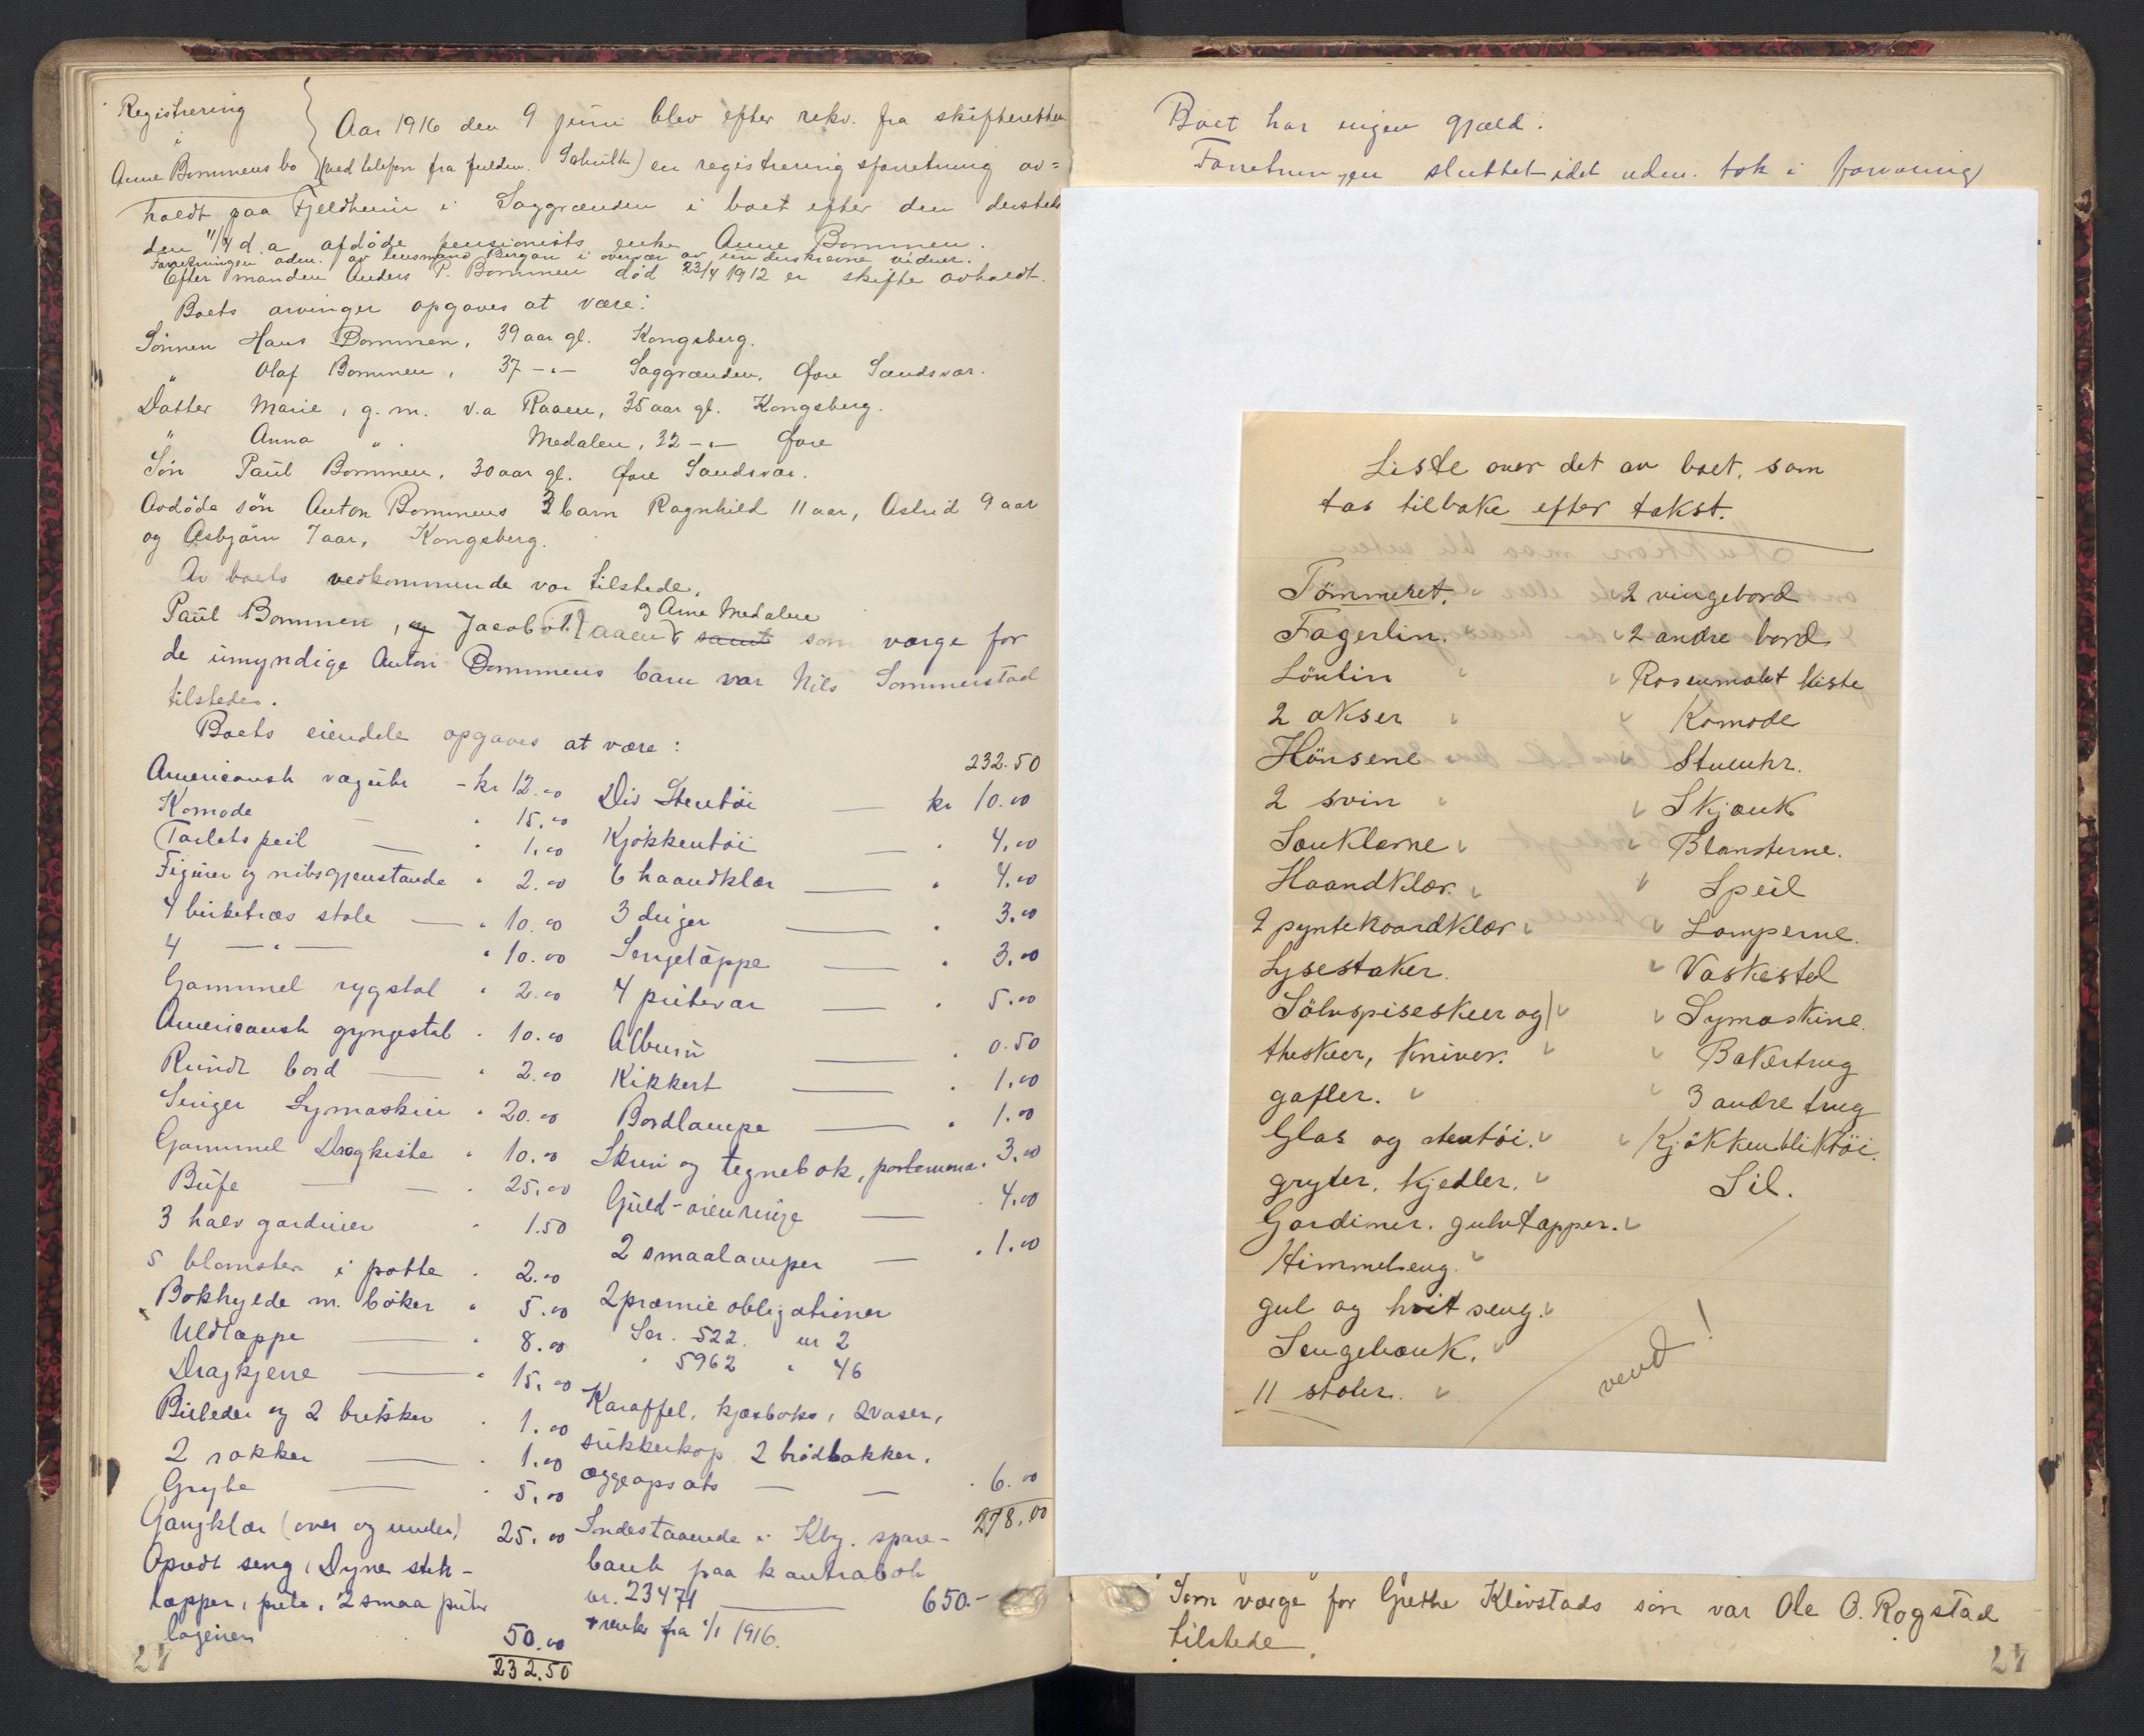 Registrering
i
Anne Bommens bo
Aar 1916 den 9 juni blev efter rekv. fra skifteretten
(ved telefon fra fuldm. Schultz) en registreringsforretning av=
holdt paa Fjeldheim i Saggrænden i boet efter den dersteds
den 11/4 d. a. afdöde pensionists enke Anne Bommen.
Forretningen adm. av lensmand Bergan i overvær av underskrevne vidner.
Efter manden Anders P. Bommen död 23/4 1912 er skifte avholdt.
Boets arvinger opgaves at være:
Sönnen Hans Bommen, 39 aar gl. Kongsberg.
" Olaf Bommen, 37 -"- Saggrænden, Övre Sandsvær.
Datter Marie, g. m. v.a Raaen, 35 aar gl. Kongsberg.
" Anna " . Medalen, 32 -"- Övre
Sön Paul Bommen, 30 aar gl. Övre Sandsvær.
Avdöde sön Anton Bommens 3 barn Ragnhild 11 aar, Astrid 9 aar
og Asbjörn 7 aar, Kongsberg.
Av boets vedkommende var tilstede,
og Arne Medalen
Paul Bommen, og Jacob Raaen samt som værge for
de umyndige Anton Bommens barn var Nils Sommerstad
tilstede.
Boets eiendele opgaves at være:
Americansk væguhr - kr 12.00
Komode — " 15.00
Toiletspeil — " 1.00
Figurer og nibsgjenstande " 2.00
4 birketræs stole — " 10.00
4 -"- " 10.00
Gammel rygstol " 2.00
Americansk gyngestol " 10.00
Rundt bord — " 2.00
Singer Symaskin " 20.00
Gammel Dragkiste " 10.00
Bufe — — " 25.00
3 halv gardiner " 1.50
5 blomster i potte " 2.00
Bokhylde m. böker " 5.00
Uldtæppe — " 8.00
Dragkjerre — " 15.00
Billeder og 2 brikker " 1.00
2 rokker — " 1.00
Gryte — " 5.00
Gangklær (over og under) 25.00
Opredt seng, Dyne stik-
tæpper, pute, 2 smaa puter
lagener 50.00
232.50
232.50
Div Stentöi — kr 10.00
Kjökkentöi — " 4.00
6 haandklær — " 4.00
3 duger — " 3.00
Sengetæppe — " 3.00
4 putevar — " 5.00
Album — " 0.50
Kikkert — " 1.00
Bordlampe — " 1.00
Skrin og tegnebok, portemona. 3.00
Guld-örenringe — " 4.00
2 smaalamper — " 1.00
2 præmieobligationer
Ser. 522. nr 2
" 5962 " 46
Karaffel, kjæxboks, 2 vaser,
sukkerkop 2 brödbakker,
æggeopsats — — " 6.00
278.00
Indestaaende i Kbg. spare-
bank paa kontrabok
nr. 23471 — 650.-
+ renter fra 1/1 1916.
24
Boet har ingen gjæld.
Forretningen sluttet idet adm. tok i forvaring
Liste over det av boet, som
tas tilbake efter takst.
Tömmeret.
Fagerlin.
Lönlin
2 økser
Hönsene
2 svin
Sauklærne
Haandklær.
2 pyntehaandklær
Lysestaker.
Sölvspiseskeer og
theskeer, kniver.
gafler.
Glas og stentöi.
gryter, kjedler.
Gardiner. gulvtæpper.
Himmelseng.
gul og hvit seng.
Sengebænk.
11 stoler.
2 vingebord
2 andre bord
Rosenmalet kiste
Komode
Stueuhr.
Skjænk
Blomsterne.
Speil
Lamperne.
Vaskestel
Symaskine.
Bakertrug
3 andre trug
Kjökkenbliktöi.
Sil.
vend!
Som værge for Grethe Klevstads sön var Ole O. Rogstad
tilstede.
24